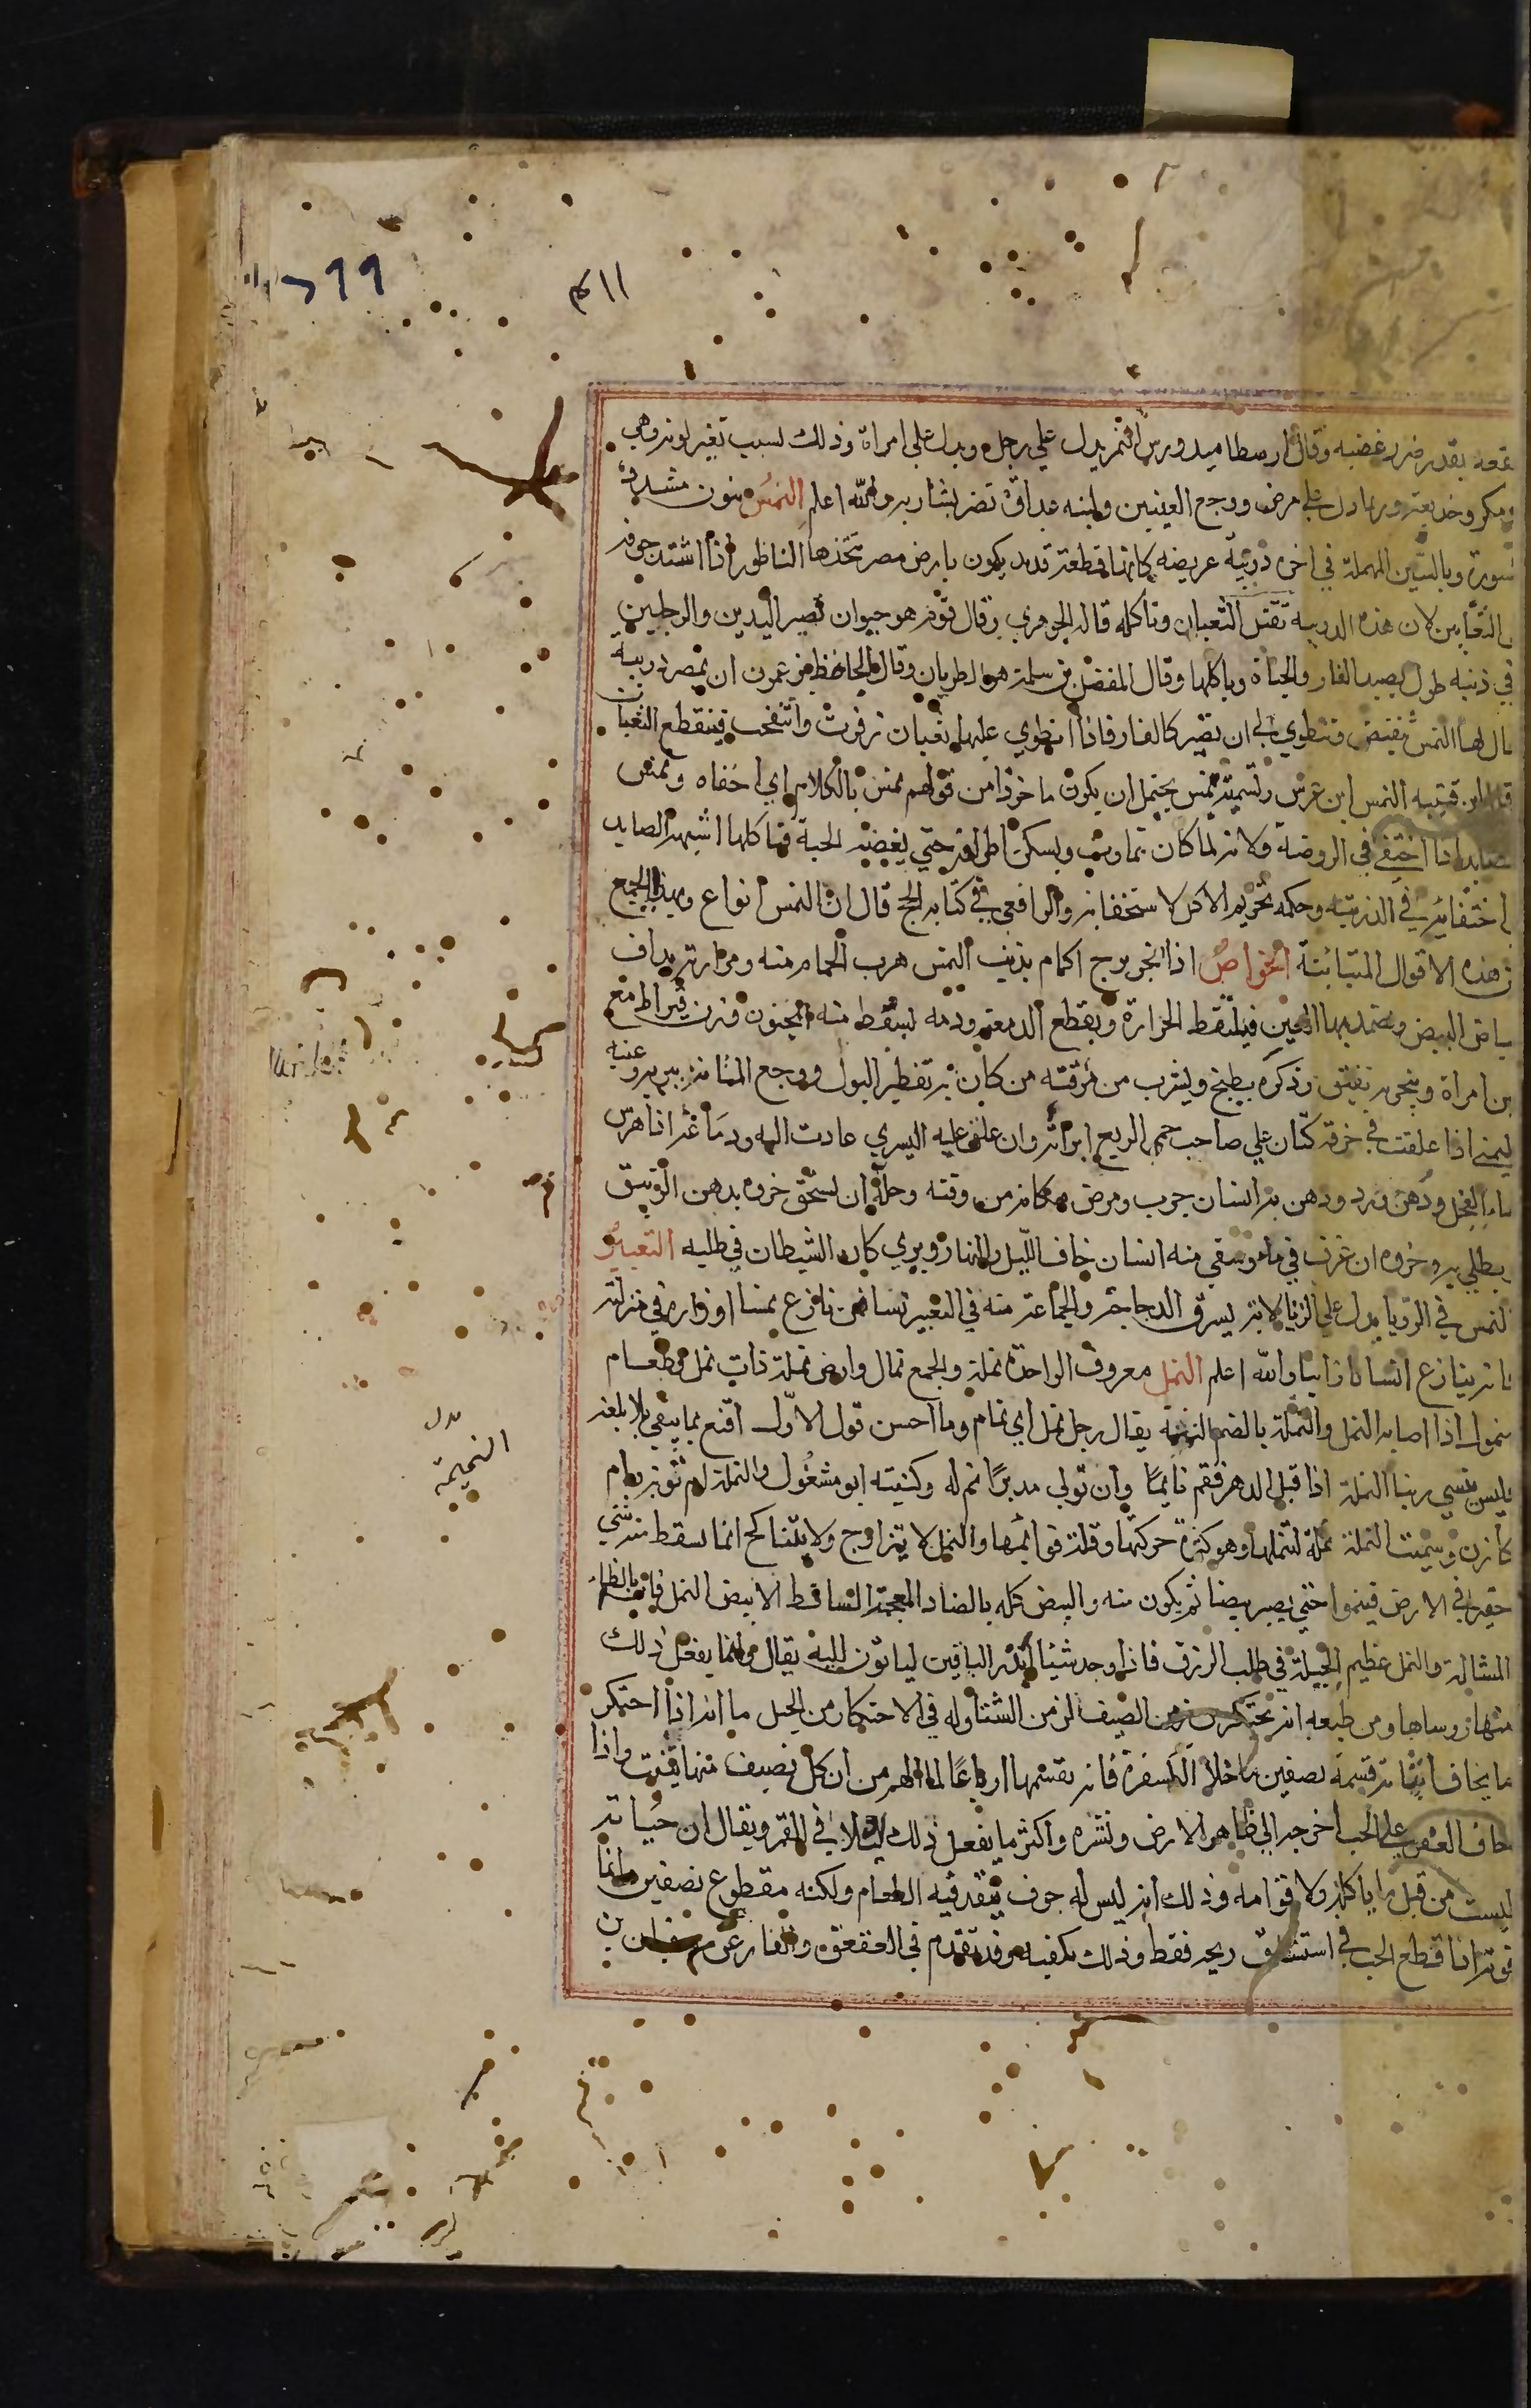 ٢٩٩
٤١١
بقدر ضرر غضبه وقال ارطاميدورس النمر يدل علي رجل ويدل علي امراة وذلك لسبب تغير لونه وهي
مكر وخديعة وربما دل علي مرض ووجع العينين ولبنه عداوة تضر بشاربه والله اعلم النمس بنون مشددة
وبالسين المهملة في اخره دويبة عريضة كانها قطعة قديد يكون بارض مصر تتخذها الناظور اذا اشتد خوفه
الثعابين لان هذه الدويبة تقتل الثعبان وتاكله قاله الجوهري وقال قوم هو حيوان قصير اليدين والرجلين
في ذنبه طول يصيد الفار والحياة وياكلها وقال المفضل بن سلمة هو الظربان وقال الجاحظ يزعمون ان بمصر دويبة
لها النمس تنقبض وتنطوي الي ان تصير كالفار فاذا انطوي عليها ثعبان زفرت وانتفخت فينقطع الثعبان
قال ابن قتيبه النمس ابن عرس وتسميته نمس يحتمل ان يكون ماخوذا من قولهم نمس بالكلام اي اخفاه ونمس
الصايد اذا اختفي في الروضة ولانه لما كان يتماوت ويسكن اطرافه حتي يعضه الحية فتاكلها اشبه الصايد
اختفائه في الدريئة وحكمه تحريم الاكل لاستخفانه والرافعي في كتابه الحج قال ان النمس انواع وبهذا الجمع
هذه الاقوال المتباينة الخواص اذا بخر برج الحمام بذنب النمس هرب الحمام منه ومرارته يداف
بياض البيض ويضمد بها العين فيلتقط الحرارة ويقطع الدمعة ودمه يسقط منه المجنون وزن قيراط مع
لبن امراة ويبخر به يفيق وذكره يطبخ ويشرب من مرقته من كان به تقطير البول ووجع المثانة يبريه وعينه
اليمني اذا علقت في خرقة كتان علي صاحب حمي الربع ابراته وان علق عليه اليسري عادت اليه ودماغه اذا هرس
بماء الفجل ودهن ورد ودهن به انسان جرب ومرض مكانه من وقته وحله ان يسحق خروه بدهن الزنبق
يطلي به وخروه ان غرق في ما وسقي منه انسان خاف الليل والنهار ويري كان الشيطان في طلبه التعبير
النمس في الرويا يدل علي الزنا لانه يسرق الدجاجة والجماعة منه في التعبير نسا فمن نازع نمسا او راه في منزله
فانه ينازع انسانا زانيا والله اعلم النمل معروف الواحدة نملة والجمع نمال وارض نملة ذات نمل وطعام
منمول اذا اصابه النمل والنملة بالضم النميمة يقال رجل نمل اي نمام وما احسن قول الاول اقنع بما يبقي بلا بلغة
فليس ينسي ربنا النملة اذا قبل الدهر فقم قايما وان تولي مدبرا نم له وكنيته ابو مشغول والنملة ام نوبة وام
مازن وسميت النملة نملة لتنملها وهو كثرة حركتها وقلة قوائمها والنمل لا يتزاوج ولا يتناكح انما يسقط منه شي
حقير في الارض فينموا حتي يصير بيضا ثم يكون منه والبيض كله بالضاد المعجمة الساقط الا بيض النمل فانه بالظاء
المشالة والنمل عظيم الحيلة في طلب الرزق فاذا وجد شيئا انذر الباقين لياتون اليه يقال وانما يفعل ذلك
منها روساها ومن طبعه انه يحتكر من زمن الصيف لزمن الشتا وله في الاحتكار من الحيل ما انه اذا احتكر
ما يخاف انباته قسمة نصفين ما خلا الكسفرة فانه يقسمها ارباعا لما الهم من ان كل نصف منها ينبت واذا
خاف العفن علي الحب اخرجه الي ظاهر الارض ونشره واكثر ما يفعل ذلك ليلا في القمر ويقال ان حياته
ليست من قبل ما ياكله ولا قوامه وذلك انه ليس له جوف ينفد فيه الطعام ولكنه مقطوع نصفين وانما
قوته اذا قطع الحب في استنشاق ريحه فقط وذلك يكفيه وقد تقدم في العقعق والفار عن سفيان بن
بدل
النميمة